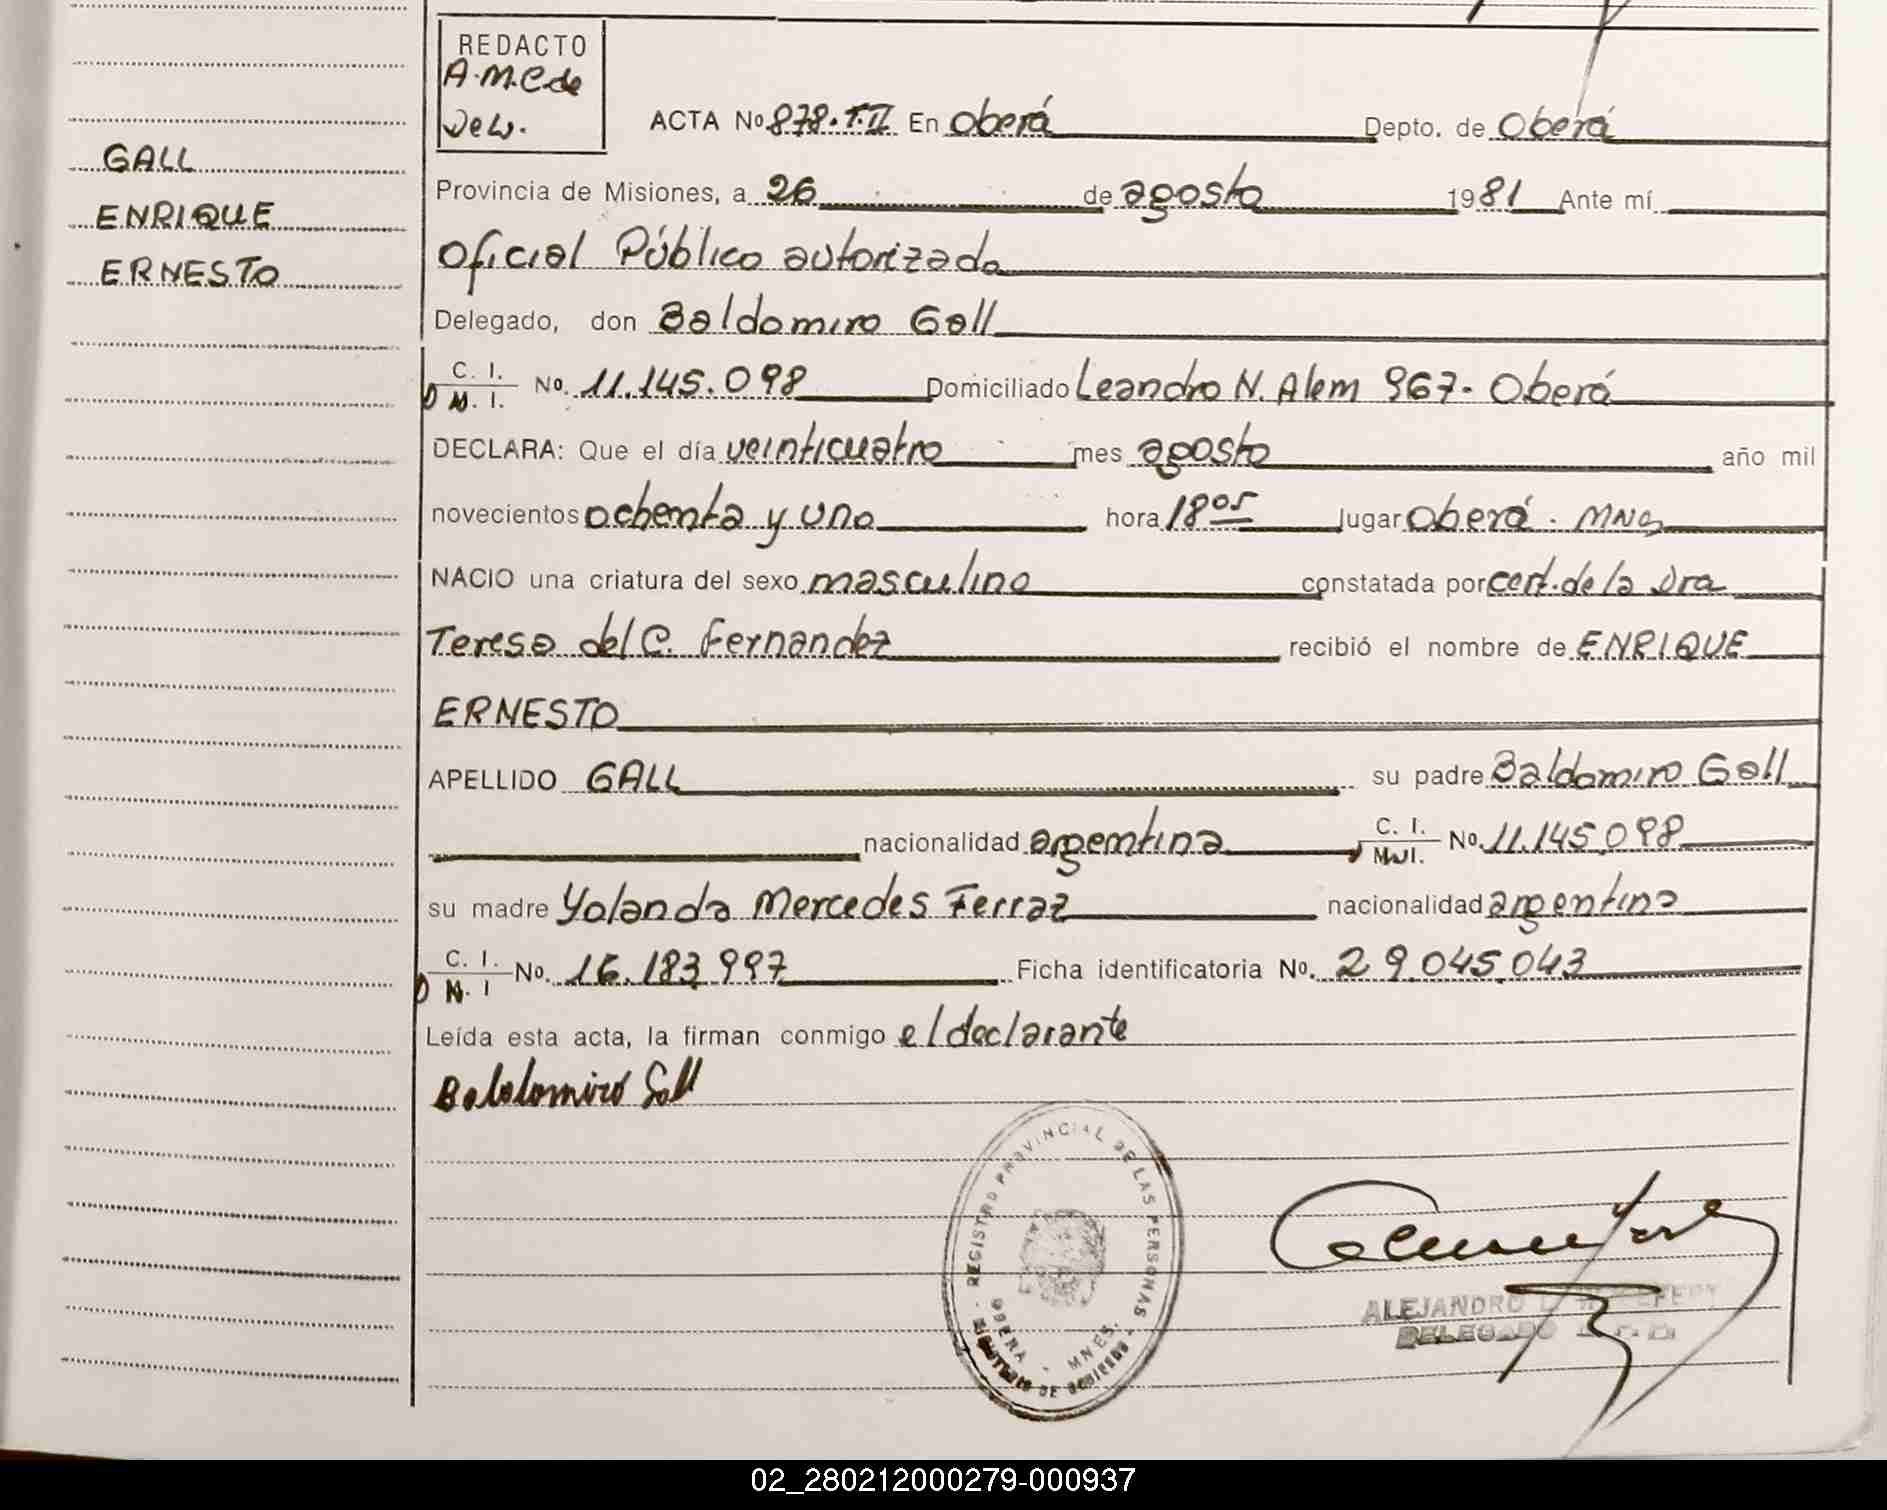 REDACTO
A.M.C.de
ACTA No 878.T.II En Oberá Depto. de Oberá
GALL
ENRIQUE
ERNESTO
Provincia de Misiones, a 26 de agosto 1981 Ante mí
Oficial Público autorizado
Delegado, don Baldomiro Gall
C. I.
D M. I. No. 11.145.098 Domiciliado Leandro N. Alem 967- Oberá
DECLARA: Que el día veinticuatro mes agosto año mil
novecientos ochenta y uno hora 18 05 lugar Oberá. MNes
NACIO una criatura del sexo masculino constatada por cert. de la Dra
Teresa del C. Fernandez recibió el nombre de ENRIQUE
ERNESTO
APELLIDO GALL su padre Baldomiro Gall
nacionalidad argentina C. I. M.I. No. 11.145.098
su madre Yolanda Mercedes Ferraz nacionalidad argentina
C. I.
D M. I No. 16.183.997 Ficha identificatoria No. 29.045.043
Leída esta acta, la firman conmigo el declarante
Baldomiro Gall
REGISTRO PROVINCIAL DE LAS PERSONAS
OBERA - MNES.
MINISTERIO DE GOBIERNO
ALEJANDRO
DELEGADO
02_280212000279-000937